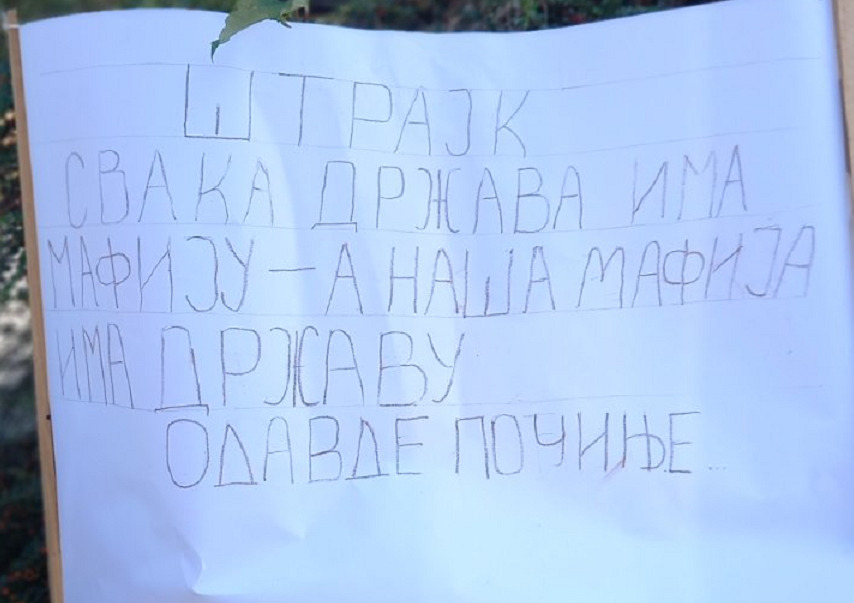 ШТРАЈК
СВАКА ДРЖАВА ИМА
МАФИЈУ — А НАША МАФИЈА
ИМА ДРЖАВУ
ОДАВДЕ ПОЧИЊЕ...